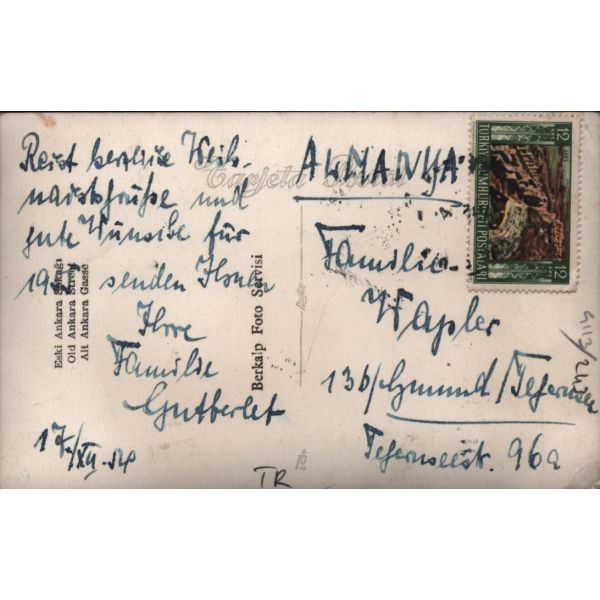 Recht herzliche Weih-
nachtsgrüße und
gute Wünsche für
senden Ihnen
Ihre
Familie
Gutberlet
17/XII. 54
Eski Ankara Sokağı
Old Ankara Street
Alt Ankara Gasse
Tarjeta Postal
Berkalp Foto Servisi
ALMANYA
Familie
Wapler
13b/Gmund/Tegernsee
Tegernseestr. 96a
TÜRKİYE CUMHURİYETİ POSTALARI
12
12
TR